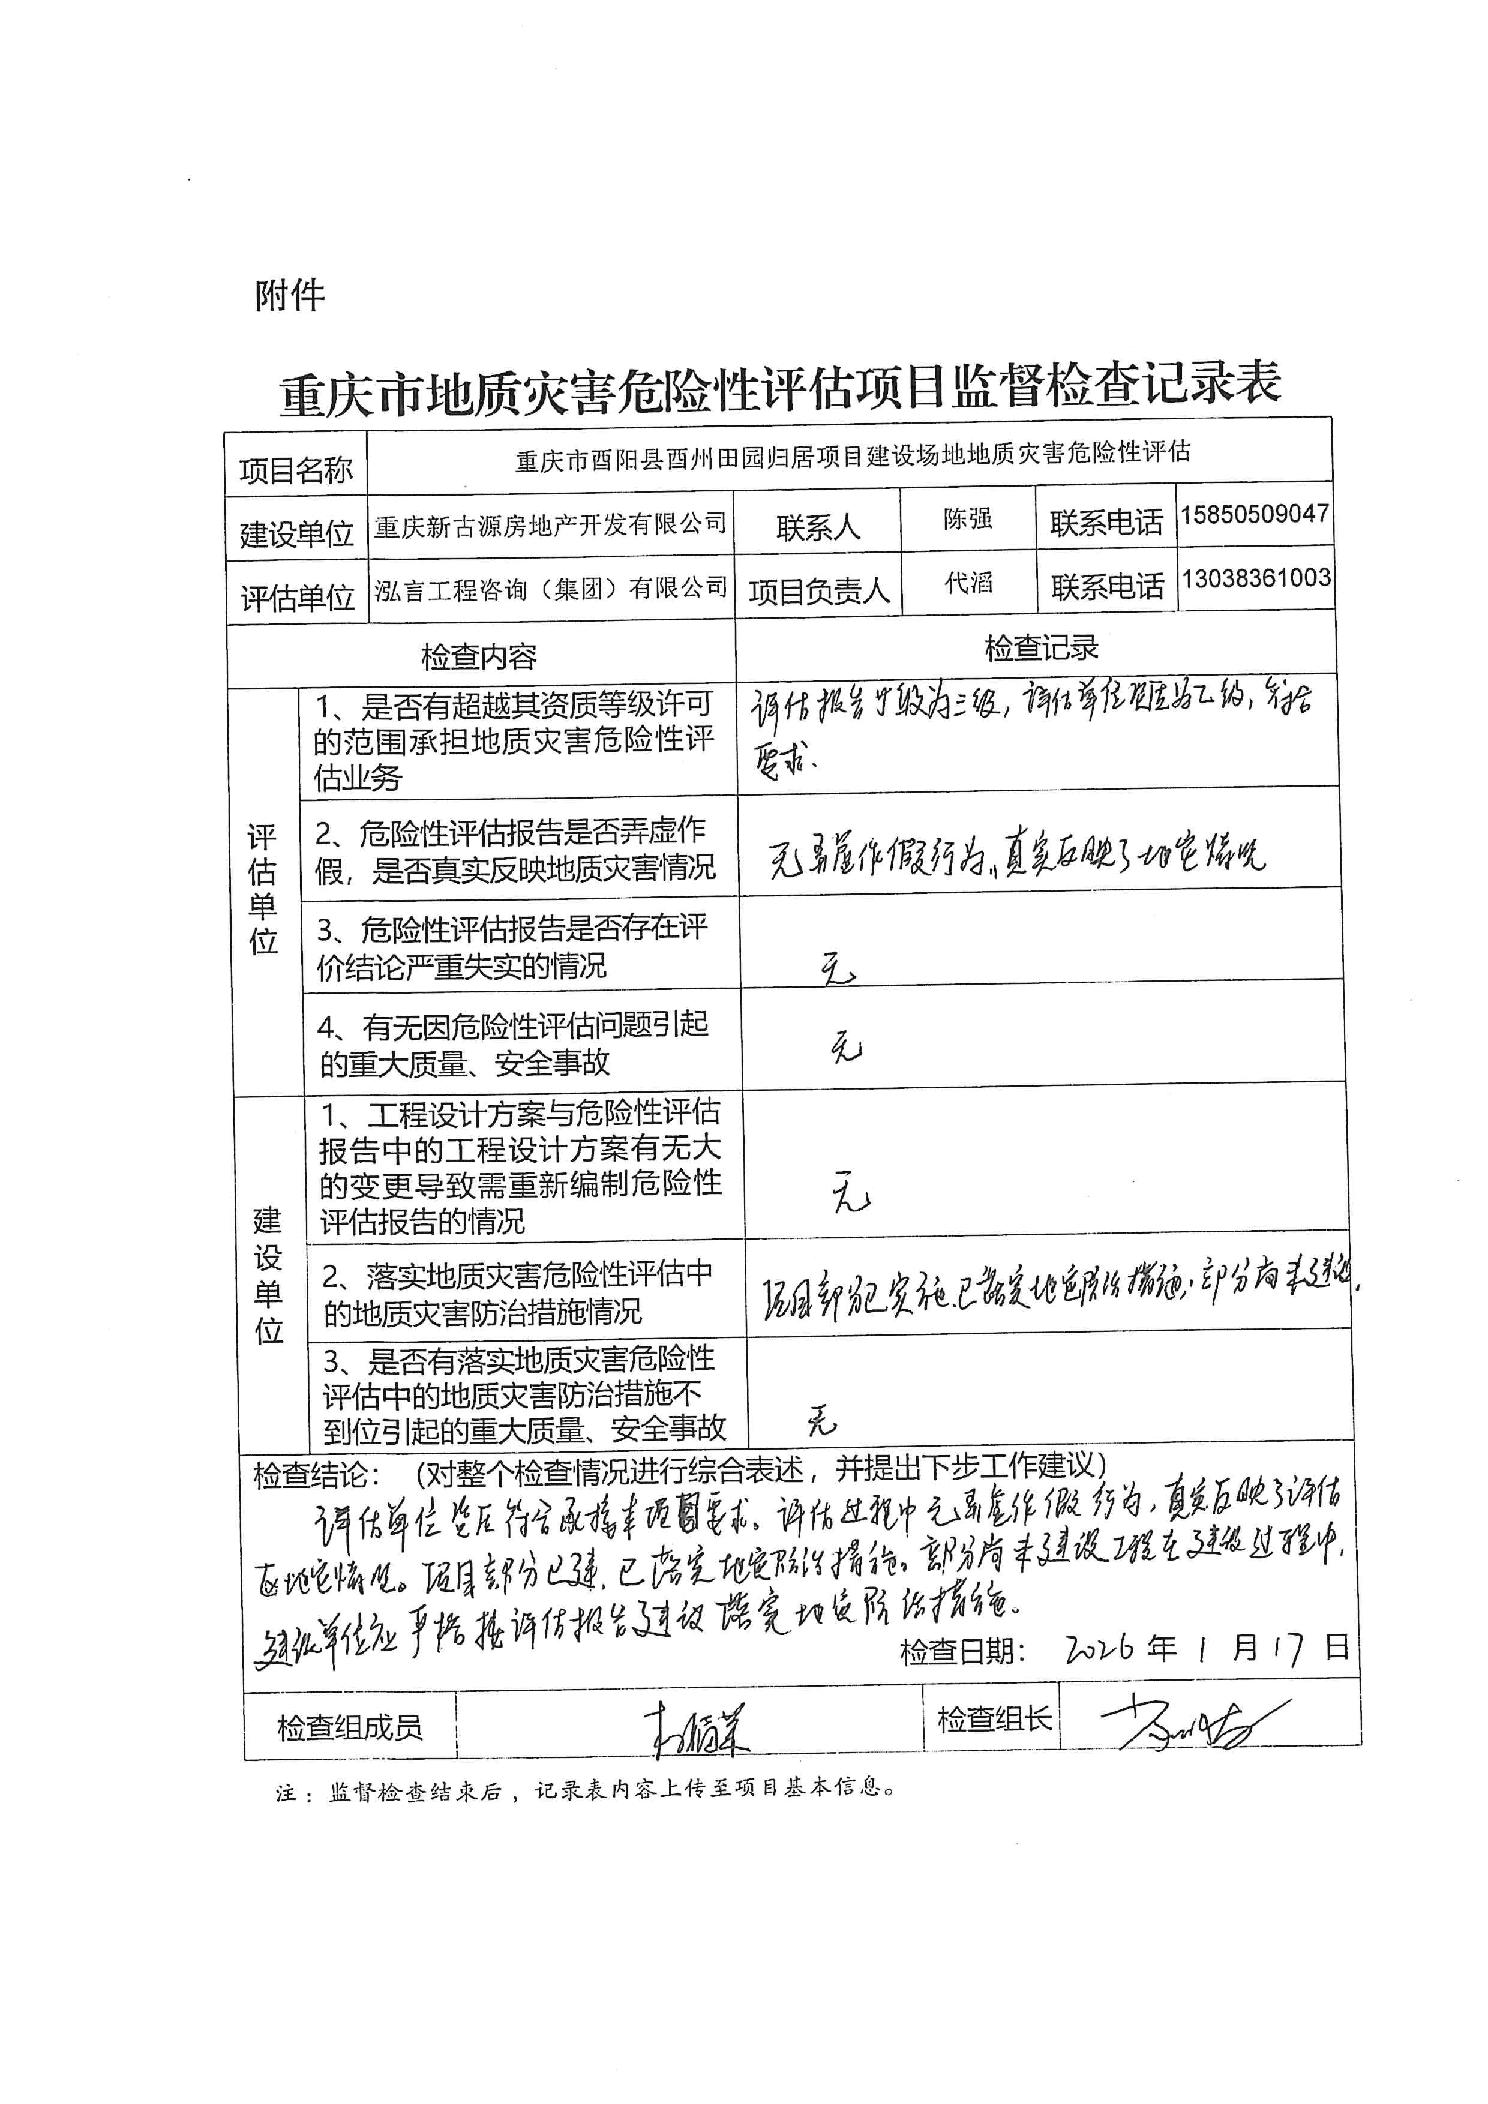 附件
重庆市地质灾害危险性评估项目监督检查记录表
项目名称 重庆市酉阳县酉州田园归居项目建设场地地质灾害危险性评估
建设单位 重庆新古源房地产开发有限公司 联系人 陈强 联系电话 15850509047
评估单位 泓言工程咨询（集团）有限公司 项目负责人 代滔 联系电话 13038361003
检查内容 检查记录
评估单位
1、是否有超越其资质等级许可
的范围承担地质灾害危险性评
估业务
评估报告等级为三级，评估单位资质为乙级，符合
要求、
2、危险性评估报告是否弄虚作
假，是否真实反映地质灾害情况
无弄虚作假行为，真实反映了地灾情况
3、危险性评估报告是否存在评
价结论严重失实的情况
无
4、有无因危险性评估问题引起
的重大质量、安全事故
无
建设单位
1、工程设计方案与危险性评估
报告中的工程设计方案有无大
的变更导致需重新编制危险性
评估报告的情况
无
2、落实地质灾害危险性评估中
的地质灾害防治措施情况
项目部分已实施、已落实地灾防治措施，部分尚未建设.
3、是否有落实地质灾害危险性
评估中的地质灾害防治措施不
到位引起的重大质量、安全事故
无
检查结论：（对整个检查情况进行综合表述，并提出下步工作建议）
评估单位资质符合承接本项目要求。评估过程中无弄虚作假行为，真实反映了评估
区地灾情况。项目部分已建，已落实地灾防治措施。部分尚未建设工程在建设过程中，
建设单位应严格按评估报告建议落实地灾防治措施。
检查日期： 2026 年 1 月 17 日
检查组成员 检查组长
注：监督检查结束后，记录表内容上传至项目基本信息。